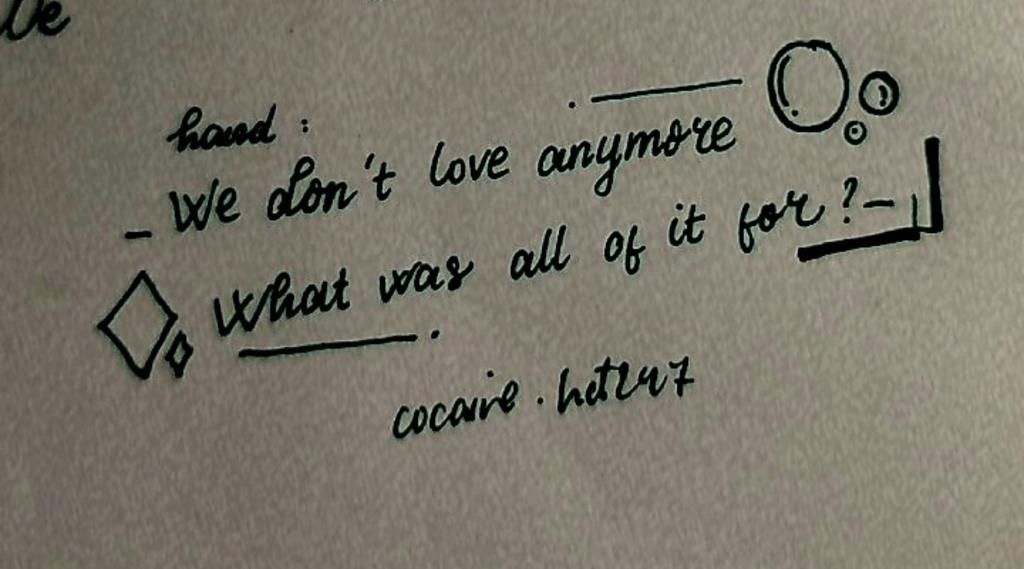 We
hand :
_ We don't love anymore
What was all of it for ? _
cocaine . hct247